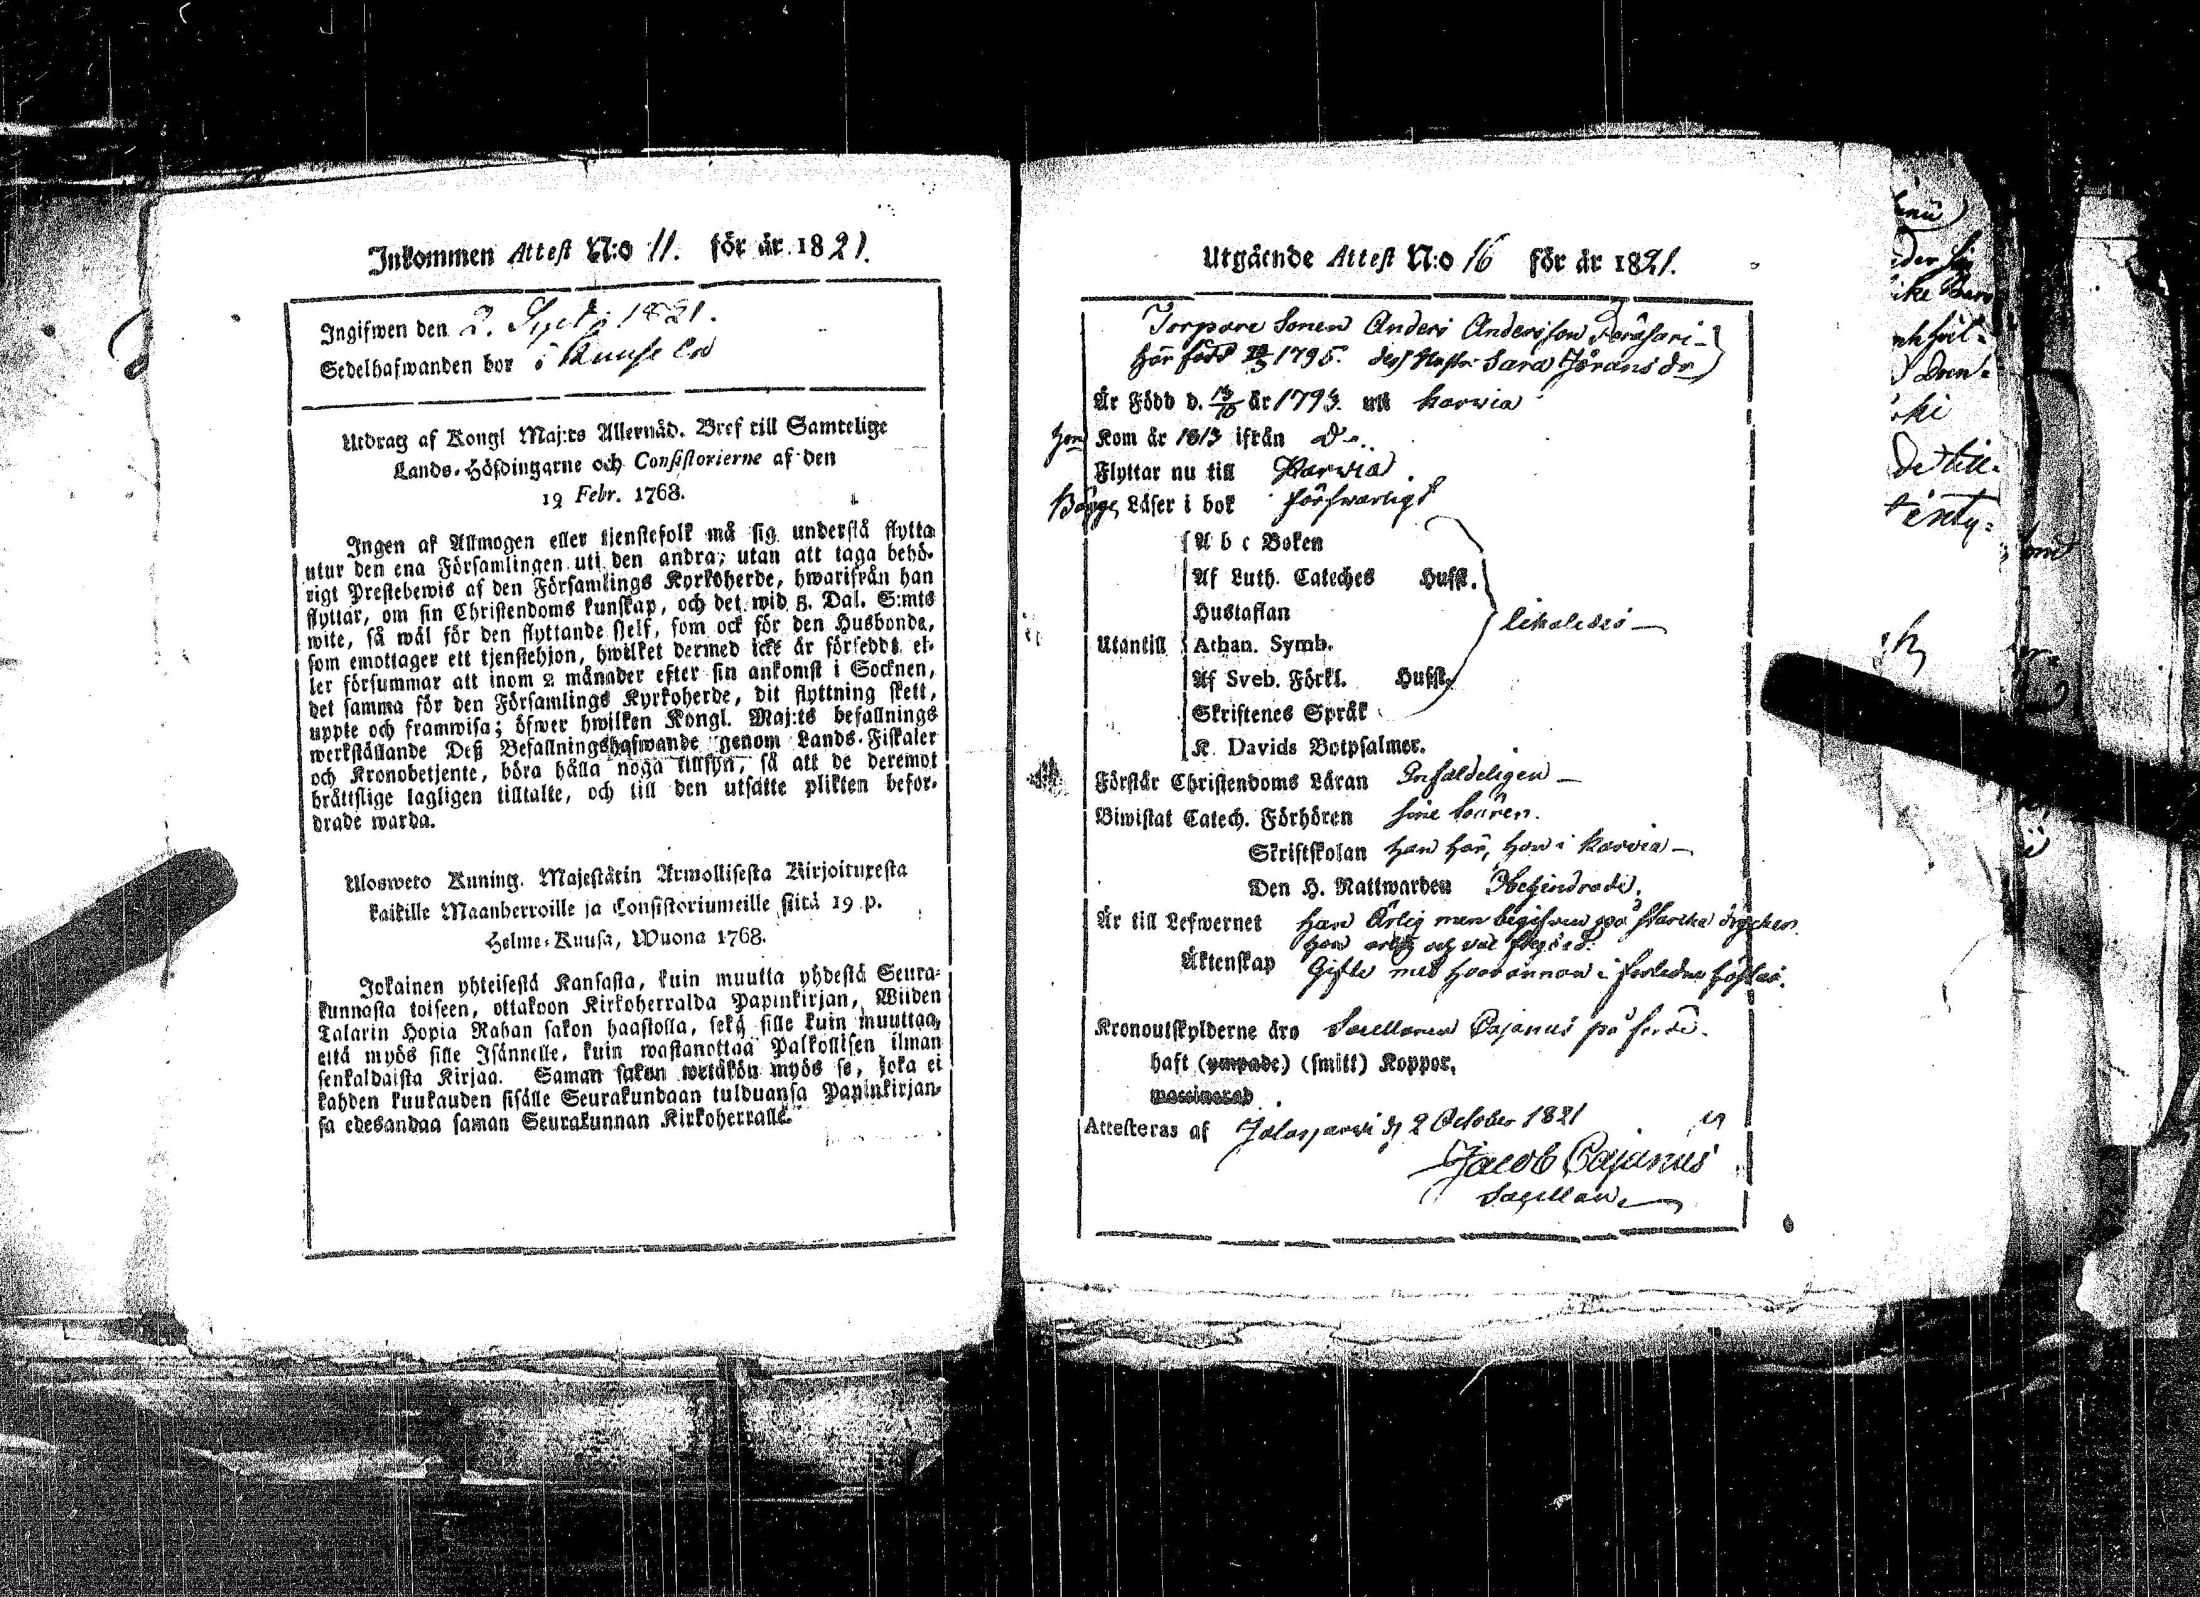 Inkommen Attest N:o 11. för år 1821.
Ingifwen den 2. 1821.
Sedelhafwanden bor i
Utdrag af Kongl Maj:ts Allernåd. Bref till Samtelige
Lands-Höfdingarne och Consistorierne af den
19 Febr. 1768.
Ingen af Allmogen eller tjenstefolk må sig understå flytta
utur den ena Församlingen uti den andra; utan att taga behö-
rigt Prestebewis af den Församlings Kyrkoherde, hwarifrån han
flyttar, om sin Christendoms kunskap, och det wid 5. Dal. S:mts
wite, så wäl för den flyttande sjelf, som ock för den Husbonde,
som emottager ett tjenstehjon, hwilket dermed icke är försedde el-
ler försummar att inom 2 månader efter sin ankomst i Socknen,
det samma för den Församlings Kyrkoherde, dit flyttning skett,
uppte och framwisa; öfwer hwilken Kongl. Maj:ts befallnings
werkställande Deß Befallningshafwande genom Lands-Fiskaler
och Kronobetjente, böra hålla noga tillsyn, så att de deremot
bråttslige lagligen tilltalte, och till den utsatte plikten befor-
drade warda.
Ulosweto Kuning. Majestätin Armollisesta Kirjoituxesta
kaikille Maanherroille ja Consistoriumeille siitä 19 p.
Helme-Kuusa, Wuona 1768.
Jokainen yhteisestä Kansasta, kuin muutta yhdestä Seura-
kunnasta toiseen, ottakoon Kirkoherralda Papinkirjan, Wiiden
Talarin Hopia Rahan sakon haastolla, sekä sille kuin muuttaa,
että myös sille Isännelle, kuin wastanottaa Palkollisen ilman
senkaldaista Kirjaa. Saman sakon wetäkön myös se, joka ei
kahden kuukauden sisälle Seurakundaan tulduansa Papinkirjan-
sa edesandaa saman Seurakunnan Kirkoherralle.
Utgående Attest N:o 16 för år 1821.
Torpare Sonen Anders Andersson
här född 1795. dess Hustru Sara Jöransdr
Är Född d. 13/10 år 1793. uti Karvia
hon Kom år 1813 ifrån Do.
Flyttar nu till Karvia
Bägge Läser i bok försvarligt
A b c Boken
Af Luth. Cateches Hufst.
Hustaflan
Utantill Athan. Symb. likaledes
Af Sveb. Förkl. Hufst.
Skriftenes Språk
K. Davids Botpsalmer.
Förstår Christendoms Läran Enfaldeligen
Biwistat Catech. Förhören sine
Skriftskolan han här, hon i Karvia
Den H. Nattwarden Obehindrade.
Är till Lefwernet han Ärlig men begifven på starka drycker.
hon ärlig och väl
Äktenskap Gifte med hvarannan i förledne höstas.
Kronoutskylderne äro Sacellanen Cajanus på
haft (ympade) (smitt) Koppor.
Attesteras af Jalasjärvi d. 2 October 1821
Jacob Cajanus
Sacellan.